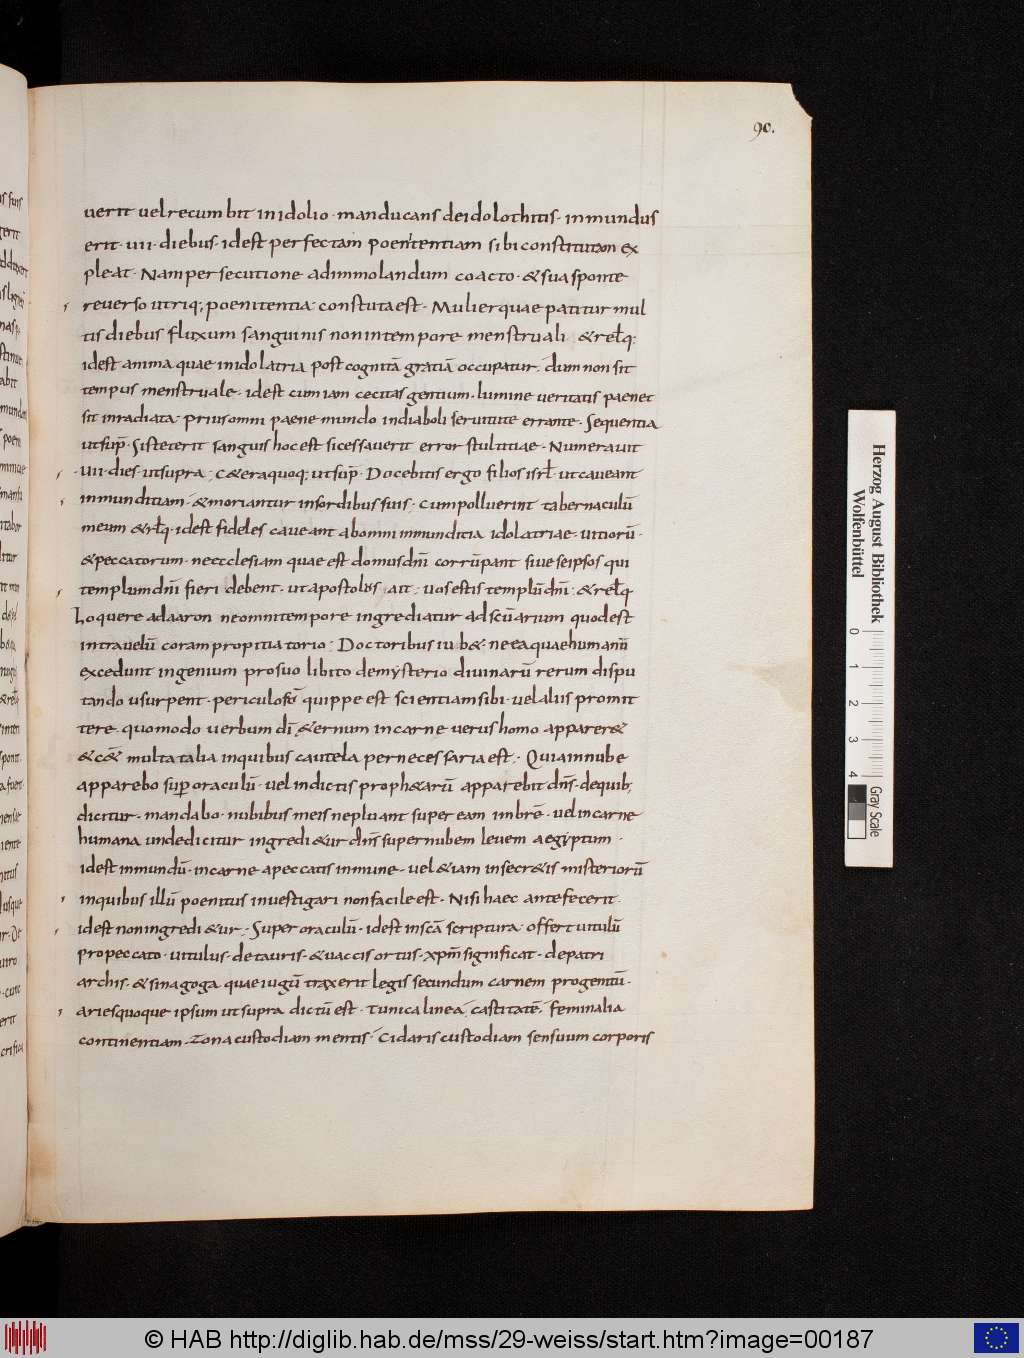 90.
uerit uel recumbit in idolio · manducans de idolothitis · inmundus
erit · uii · diebus · idest perfectam poenitentiam sibi constitutam ex
pleat · Nam persecutione ad immolandum coacto · & sua sponte
reuerso utriq; poenitentia constuta est · Mulier quae patitur mul
tis diebus fluxum sanguinis non in tempore menstruali · & relq:
idest anima quae in idolatria post cognitā gratiā occupatur · dum non sit
tempus menstruale · idest cum iam cecitas gentium · lumine ueritatis paene t
sit inradiata · prius omni paene mundo in diaboli seruitute errante · Sequentia
ut sup̄ · Si steterit sanguis hoc est si cessauerit error stultitiae · Numerauit
· uii · dies · ut supra · C&era quoq; ut sup̄ · Docebitis ergo filios isrł · ut caueant
inmunditiam · & moriantur in sordibus suis · Cum polluerint tabernaculū
meum & rłq · idest fideles caueant ab omni inmunditia idolatriae · uitiorū ·
& peccatorum · nec ecclesiam quae est domus dnī corrūpant siue se ipsos qui
templum dnī fieri debent · ut apostolus ait · uos estis templū dnī · & relq
Loquere ad aaron ne omni tempore ingrediatur ad scūarium quod est
intra uelū coram propitiatorio · Doctoribus iub& · ne ea quae humanū
excedunt ingenium pro suo libito de mysterio diuinarū rerum dispu
tando usurpent · periculosū quippe est scientiam sibi · uel aliis promit
tere quomodo uerbum dī &ernum in carne uerus homo apparer&
& c& multa talia in quibus cautela pernecessaria est · Quia in nube
apparebo sup oraculū · uel in dictis proph&arū apparebit dns̄ · de quib;
dicitur · mandabo nubibus meis ne pluant super eam imbrē · uel in carne
humana unde dicitur ingredi&ur dns̄ super nubem leuem aegyptum ·
idest in mundū · in carne a peccatis inmune · uel &iam in secr&is misteriorū
in quibus illū poenitus inuestigari non facile est · Nisi haec ante fecerit
idest non ingredi&ur · Super oraculū · idest in scā scriptura · offert uitulū
pro peccato · uitulus · de tauris · & uaccis ortus · xpm̄ significat · de patri
archis · & sinagoga quae iugū traxerit legis secundum carnem progenitū ·
aries quoque ipsum ut supra dictū est · Tunica linea castitatē · feminalia
continentiam · Zona custodiam mentis · Cidaris custodiam sensuum corporis
Herzog August Bibliothek
Wolfenbüttel
0 1 2 3 4
Gray Scale
© HAB http://diglib.hab.de/mss/29-weiss/start.htm?image=00187